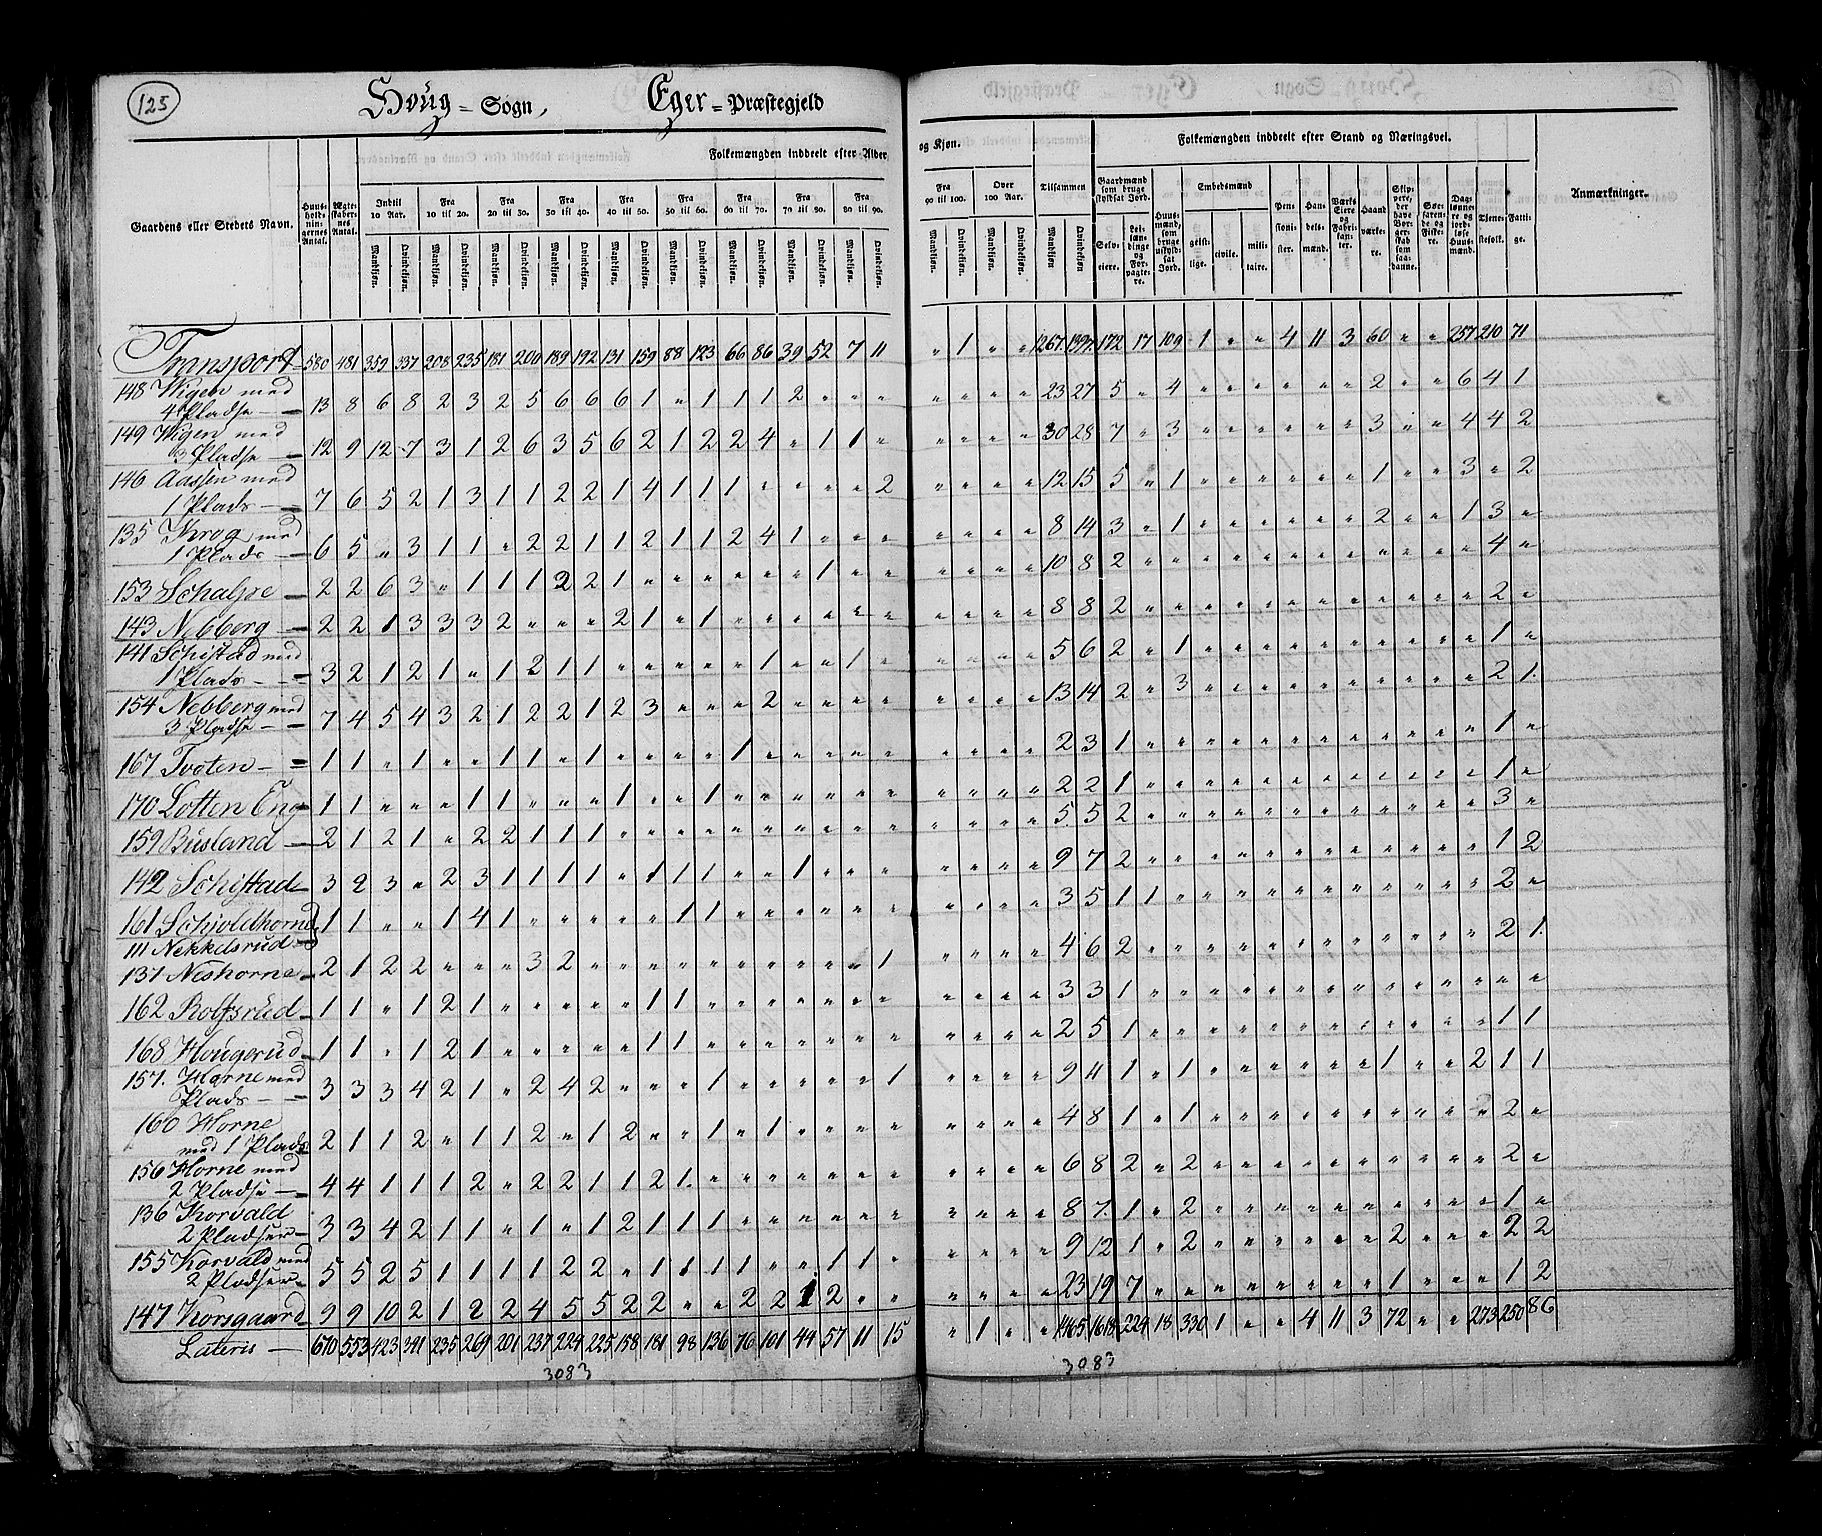 125
Houg = Sogn,
Eger = Præstegjeld
Gaardens eller Stedets Navn.
Huus-holdningernes Antal.
Ægteskabernes Antal.
Folkemængden inddeelt efter Alder
og Kjøn.
Folkemængden inddeelt efter Stand og Næringsvei.
Anmærkninger.
Indtil 10 Aar.
Fra 10 til 20.
Fra 20 til 30.
Fra 30 til 40.
Fra 40 til 50.
Fra 50 til 60.
Fra 60 til 70.
Fra 70 til 80.
Fra 80 til 90.
Fra 90 til 100.
Over 100 Aar.
Tilsammen
Mandkjøn. Qvindekjøn.
Gaardmænd som bruge skyldsat Jord.
Selveiere.
Leilændinge og Forpagtere.
Huusmænd, som bruge uskyldsat Jord.
Embedsmænd
geistlige. civile. militaire.
Pensionister.
Handelsmænd.
Værks Eiere og Fabrikanter.
Haandværkere.
Skippere, der have Borgerskab som saadanne.
Søefarende og Fiskere.
Dagslønnere og jordløse Huusmænd.
Tjenestefolk.
Fattige.
Transport 580 481 359 337 208 235 181 200 189 192 131 159 88 123 66 86 39 52 7 11 " 1 " " 1267 1397 172 17 109 1 " " 4 11 3 60 " " 257 210 71
148 Wigen med
4 Pladse 13 8 6 8 2 3 2 5 6 6 6 1 " 1 1 1 2 " " " " " " " 23 27 5 " 4 " " " " " " 2 " " 6 4 1
149 Wigen med
3 Pladse 12 9 12 7 3 1 2 6 3 5 6 2 1 2 2 4 " 1 1 " " " " " 30 28 7 " 3 " " " " " " 3 " " 4 4 2
146 Aassen med
1 Plads 7 6 5 2 1 3 1 1 2 2 1 4 1 1 1 " " " " 2 " " " " 12 15 5 " 1 " " " " " " 1 " " 3 " 2
135 Krog med
1 Plads 6 5 " 3 1 1 " 2 2 1 1 2 1 1 2 4 1 " " " " " " " 8 14 3 " 1 " " " " " " 2 " " 1 3 "
153 Schalsre 2 2 6 3 " 1 1 1 2 2 1 " " " " " " 1 " " " " " " 10 8 2 " " " " " " " " " " " " 4 "
143 Nebberg 2 2 1 3 3 3 2 " " " 2 1 " 1 " " " " " " " " " " 8 8 2 " " " " " " " " " " " " 2 "
141 Schistad med
1 Plads 3 2 1 2 1 " 1 2 1 1 " " " " " 1 " " 1 " " " " " 5 6 2 " 1 " " " " " " " " " " 1 "
154 Nebberg med
3 Pladse 7 4 5 4 3 2 1 2 2 1 2 3 " " " 2 " " " " " " " " 13 14 2 " 3 " " " " " " " " " " 2 1
167 Tvoten 1 1 " 1 " " 1 1 " 1 " " " " 1 " " " " " " " " " 2 3 1 " " " " " " " " " " " " 1 "
170 Lotten Eng 1 1 " " " 1 1 " " " 1 " " 1 " " " " " " " " " " 2 2 1 " " " " " " " " " " " " 1 "
159 Busland 2 1 2 1 " 2 2 1 1 1 " " " " " " " " " " " " " " 5 5 2 " " " " " " " " " " " " 3 "
142 Schistad 3 2 3 " 2 3 1 1 1 1 " 1 1 1 " " 1 " " " " " " " 9 7 2 " " " " " " " " " " " " 1 2
161 Schjoldhorne 1 1 " " 1 4 1 " " " " " 1 1 " " " " " " " " " " 3 5 1 1 " " " " " " " " " " " 2 "
111 Nekkelsrud
137 Neshorne 2 1 2 2 " " " 3 2 " " " " " " " " " " 1 " " " " 4 6 2 " " " " " " " " " " " " 2 1
162 Rolfsrud 1 1 " 1 2 1 " " " " " 1 1 " " " " " " " " " " " 3 3 1 " " " " " " " " " " " " " "
168 Hougerud 1 1 " 1 2 1 " " " " " 1 1 " " " " " " " " " " " 2 5 1 " " " " " " " " " " " " 1 1
157. Horne med
Plads 3 3 3 4 2 1 " 2 4 2 " " " 1 " " " " " 1 " " " " 9 4 1 " 1 " " " " " " 1 " " 2 1 1
160 Horne
med 1 Plads 2 1 1 2 " 1 1 2 " 1 2 " " 1 " 1 " " " " " " " " 4 8 1 " 1 " " " " " " " " " " 2 "
156 Horne med
2 Pladse 4 4 1 1 1 2 " 2 2 1 1 2 1 " " " " " " " " " " " 6 8 2 " 2 " " " " " " " " " " 2 "
136 Korvald
2 Pladser 3 3 4 2 1 1 " 1 " 1 2 1 1 1 " " " " " " " " " " 8 7 1 " 2 " " " " " " " " " " 1 "
155 Korvald med
2 Pladser 5 5 2 5 1 1 1 1 2 2 " 1 1 1 1 " " 1 1 " " " " " 9 12 1 " 2 " " " " " " 2 " " " 2 2
147 Korsgaard 9 9 10 2 1 2 2 4 5 5 2 2 " " 2 2 1 2 " " " " " " 23 19 7 " " " " " " " " 1 " " " 1 2
Lateris 670 553 423 391 235 269 201 237 224 225 158 181 98 136 76 101 44 57 11 15 " 1 " " 1465 1618 224 18 330 1 " " 4 11 3 72 " " 273 250 86
3083
3083